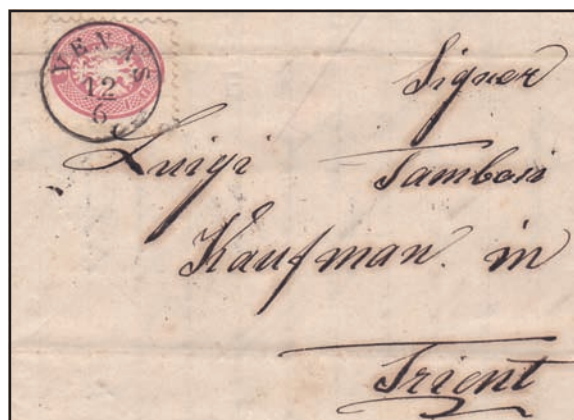 VENAS
12
6
Signor
Luigi Tambosi
Kaufman. in
Trient